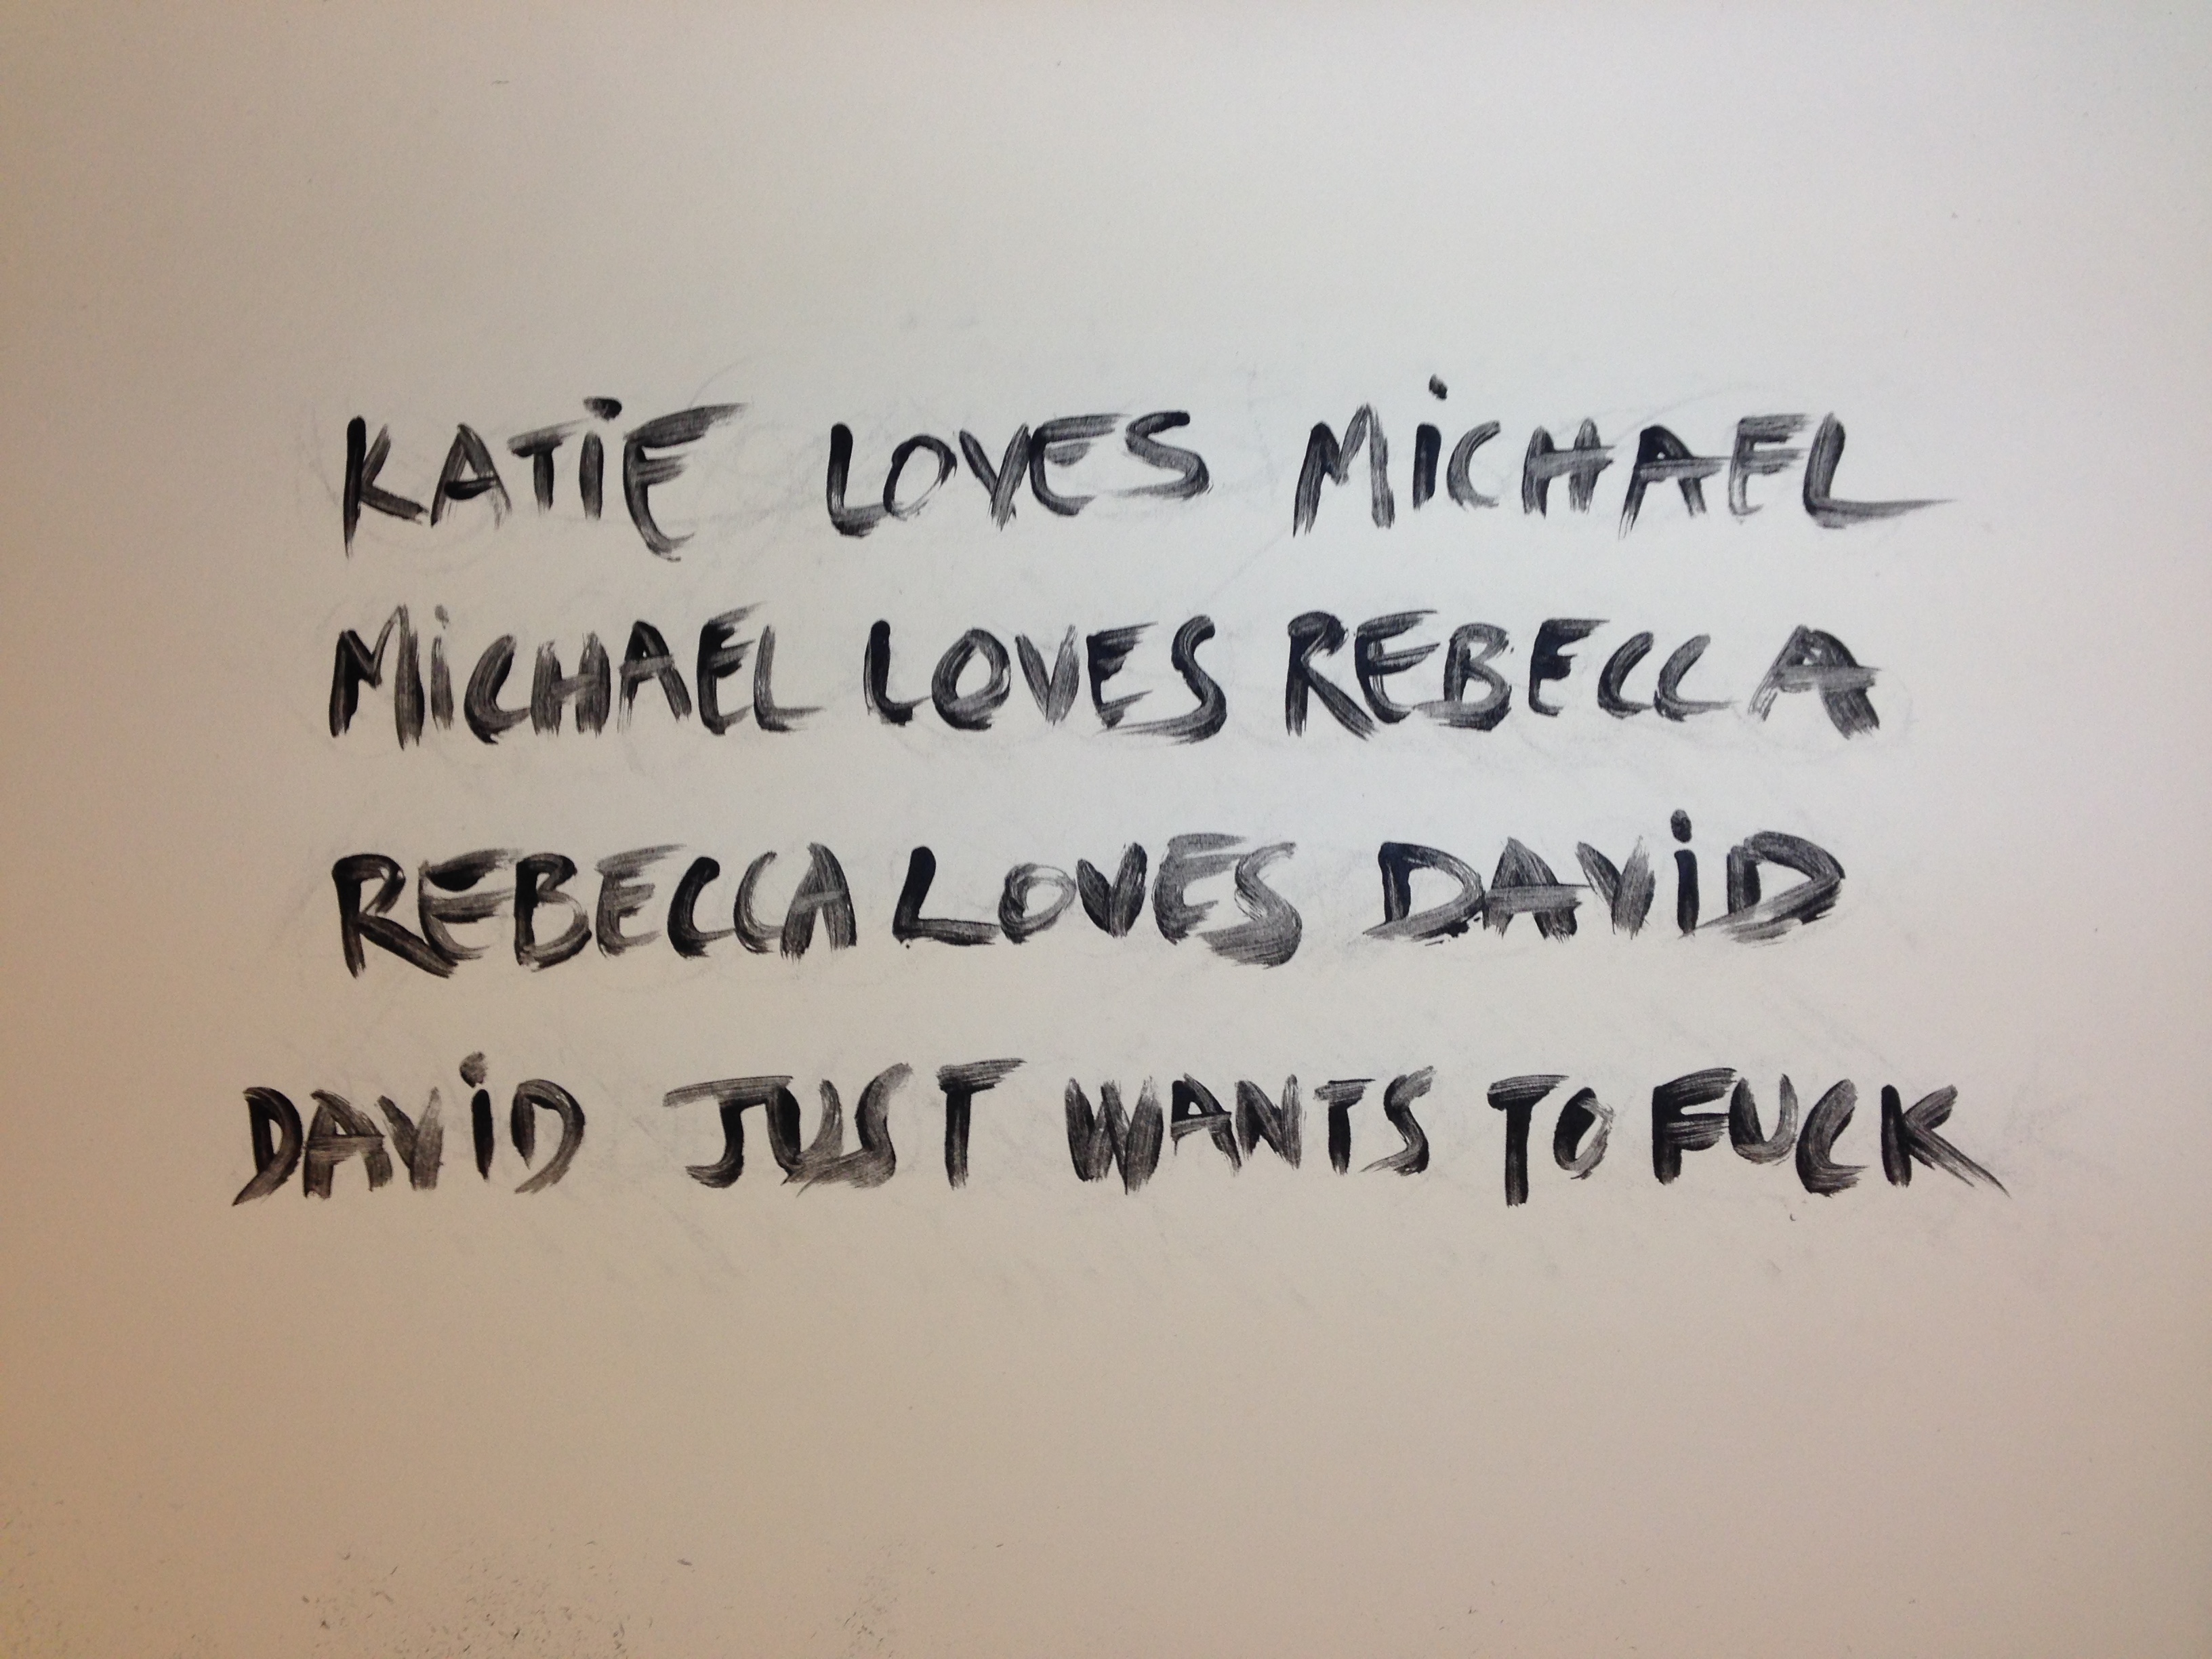 KATiE LOVES MiCHAEL
MiCHAEL LOVES REBECCA
REBECCA LOVES DAViD
DAViD JUST WANTS TO FUCK